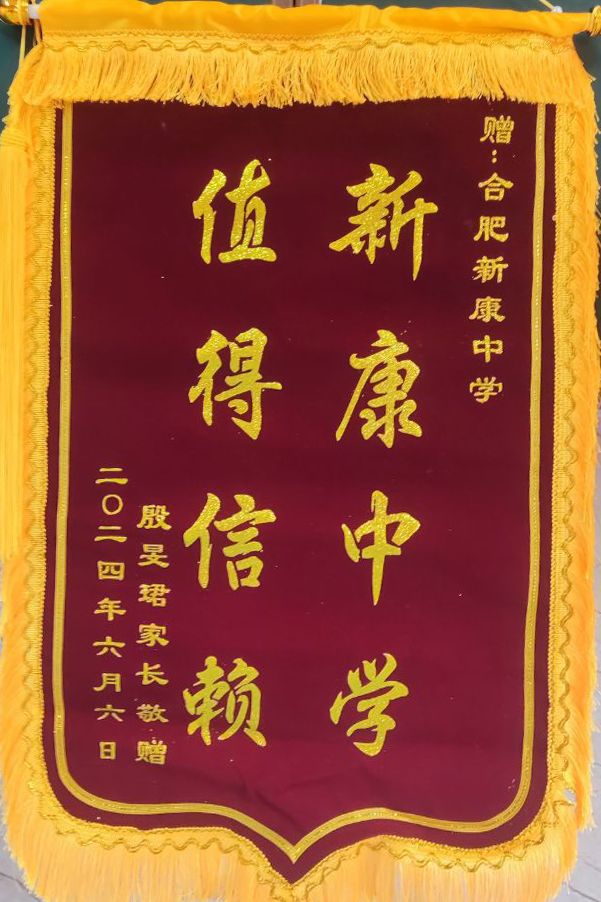 赠：合肥新康中学
新康中学
值得信赖
殷旻珺家长敬赠
二〇二四年六月六日